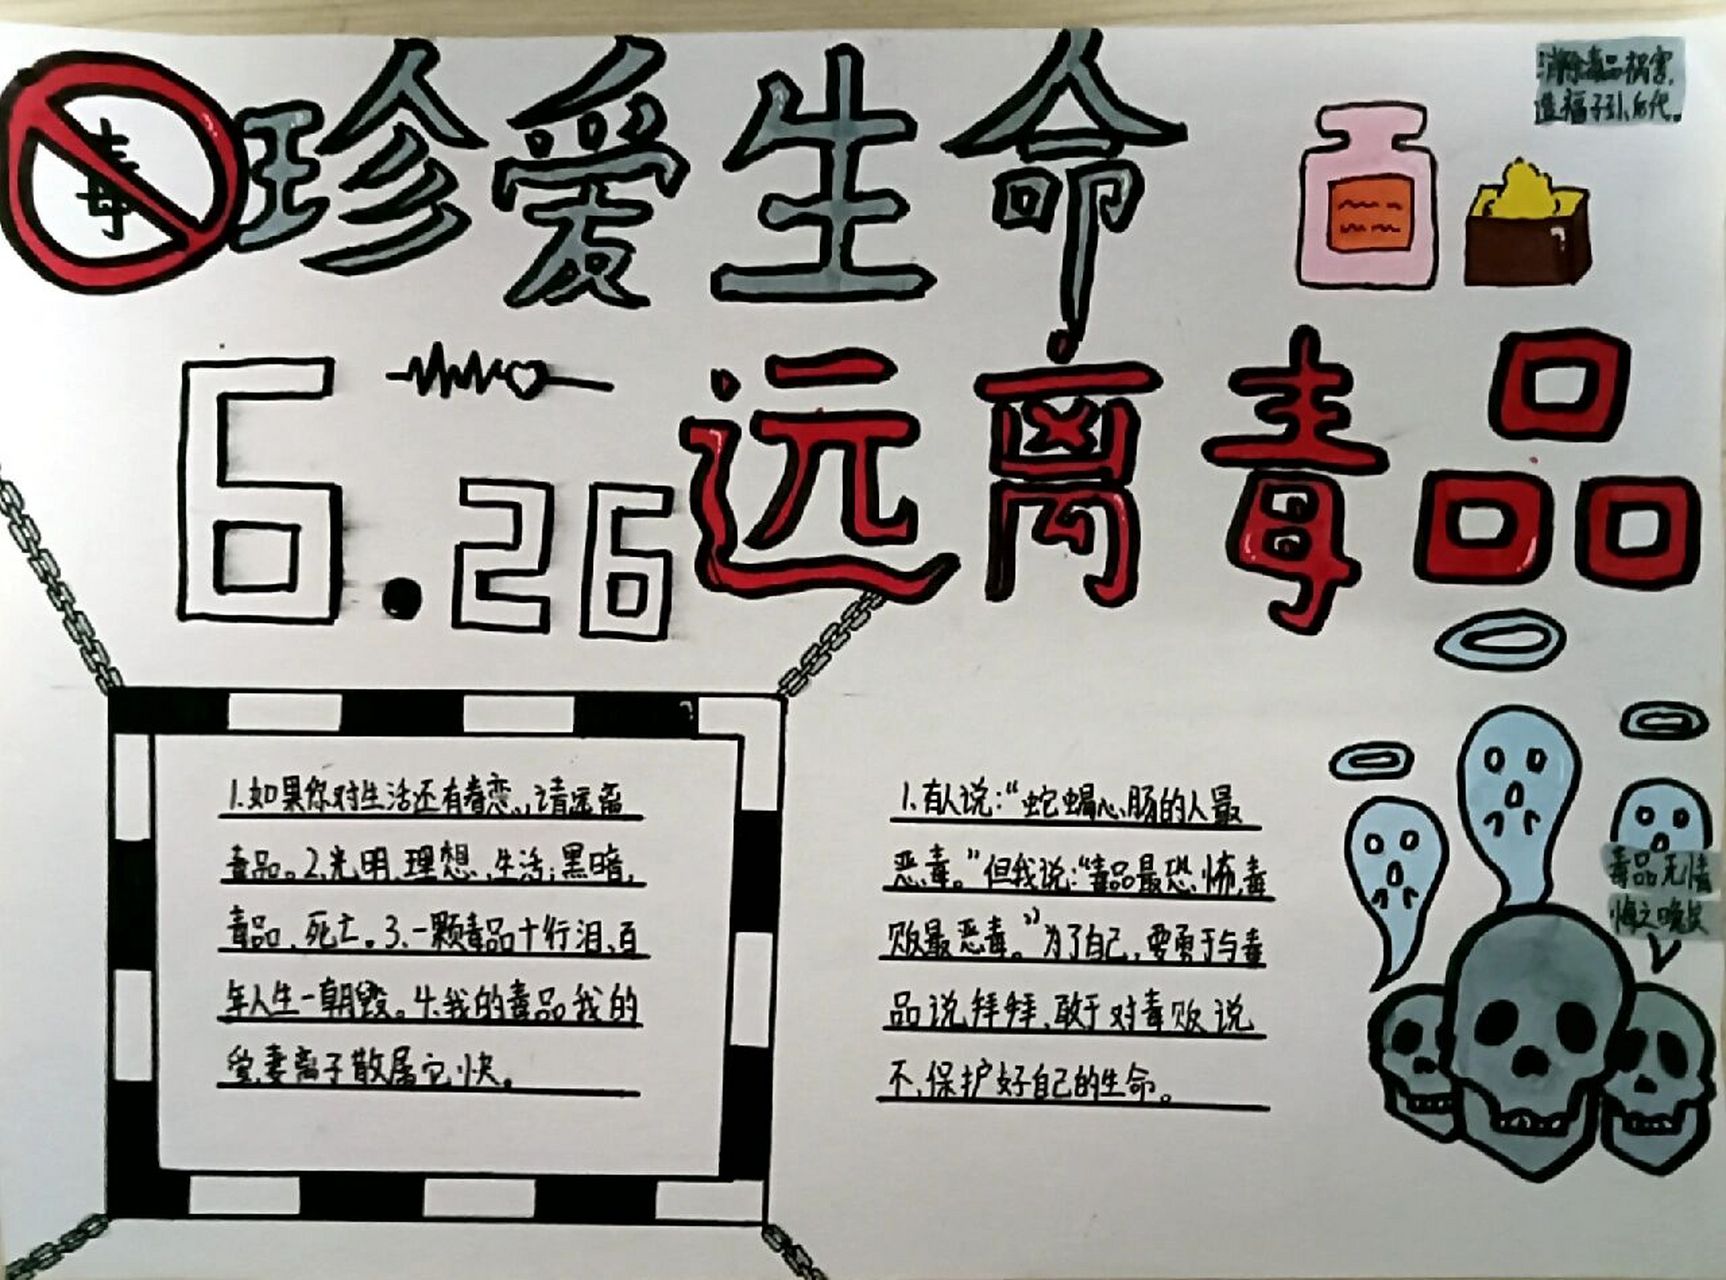 毒
珍爱生命
消除毒品祸害,
造福子孙后代。
6.26
远离毒品
1.如果你对生活还有眷恋,请远离
毒品。2.光明,理想,生活;黑暗,
毒品,死亡。3.一颗毒品十行泪,百
年人生一朝毁。4.我的毒品我的
爱,妻离子散属它快。
1.有人说:“蛇蝎心肠的人最
恶毒。”但我说:“毒品最恐怖,毒
贩最恶毒。”为了自己,要勇于与毒
品说拜拜,敢于对毒贩说
不,保护好自己的生命。
毒品无情
悔之晚矣